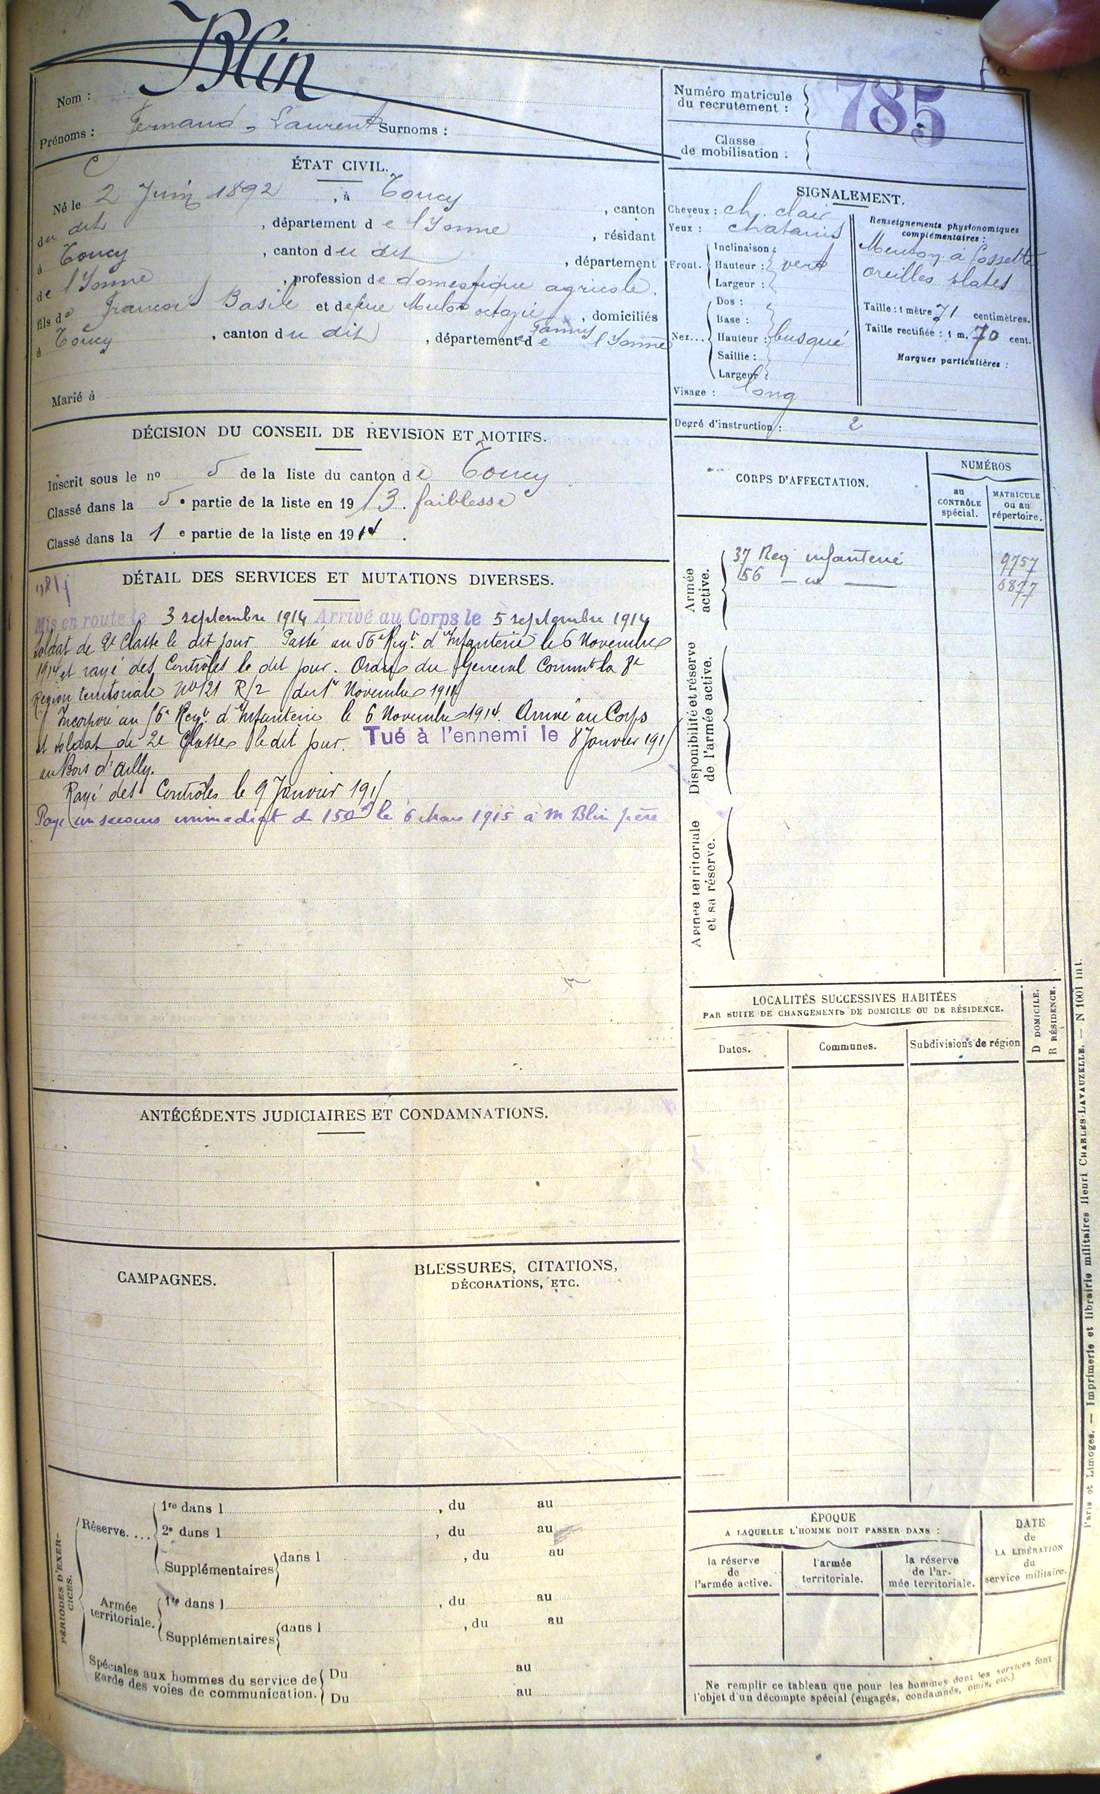 Nom : Blin
Prénoms : Fernand, Laurent Surnoms :
Numéro matricule du recrutement : 785
Classe de mobilisation :
ÉTAT CIVIL.
Né le 2 Juin 1892, à Toucy, canton
du dit, département de l'Yonne, résidant
à Toucy, canton du dit, département
de l'Yonne, profession de domestique agricole.
fils de François Basile et de feue octavie Fanny, domiciliés
à Toucy, canton du dit, département de l'Yonne
Marié à
SIGNALEMENT.
Cheveux : ch. clair
Yeux : chatains
Front. Inclinaison :
Hauteur : vert
Largeur :
Nez... Dos :
Base :
Hauteur : busqué
Saillie :
Largeur :
Visage : long
Renseignements physionomiques complémentaires :
Menton à fossette
oreilles plates
Taille : 1 mètre 71 centimètres.
Taille rectifiée : 1 m. 70 cent.
Marques particulières :
Degré d'instruction : 2
DÉCISION DU CONSEIL DE REVISION ET MOTIFS.
Inscrit sous le no 5 de la liste du canton de Toucy
Classé dans la 5e partie de la liste en 1913. faiblesse
Classé dans la 1e partie de la liste en 1914.
DÉTAIL DES SERVICES ET MUTATIONS DIVERSES.
Mis en route le 3 septembre 1914 Arrivé au Corps le 5 septembre 1914
soldat de 2e Classe le dit jour Passé au 56e Regt. d'Infanterie le 6 Novembre
1914 et rayé des Contrôles le dit jour. Ordre du Général Commt la 8e
Région territoriale No 121 R/2 du 1er Novembre 1914
Incorporé au 56e Regt. d'Infanterie le 6 Novembre 1914. Arrivé au Corps
et soldat de 2e Classe le dit jour. Tué à l'ennemi le 8 Janvier 1915
au Bois d'ailly.
Rayé des Contrôles le 9 Janvier 1915
Payé un secours immediat de 150f le 6 Mars 1915 à M Blin père
CORPS D'AFFECTATION.
NUMÉROS
au CONTRÔLE spécial.
MATRICULE ou au répertoire.
Armée active.
37 Reg infanterie 9757
56 — 6877
Disponibilité et réserve de l'armée active.
Armée territoriale et sa réserve.
LOCALITÉS SUCCESSIVES HABITÉES
PAR SUITE DE CHANGEMENTS DE DOMICILE OU DE RÉSIDENCE.
Dates. Communes. Subdivisions de région
D DOMICILE.
R RÉSIDENCE.
ANTÉCÉDENTS JUDICIAIRES ET CONDAMNATIONS.
CAMPAGNES.
BLESSURES, CITATIONS,
DÉCORATIONS, ETC.
PÉRIODES D'EXERCICES.
Réserve.... 1re dans l , du au
2e dans l , du au
Supplémentaires dans l , du au
Armée territoriale. 1re dans l , du au
Supplémentaires dans l , du au
Spéciales aux hommes du service de garde des voies de communication. Du au
Du au
ÉPOQUE
A LAQUELLE L'HOMME DOIT PASSER DANS :
la réserve de l'armée active.
l'armée territoriale.
la réserve de l'armée territoriale.
DATE de LA LIBÉRATION du service militaire.
Ne remplir ce tableau que pour les hommes dont les services font
l'objet d'un décompte spécial (engagés, condamnés, omis, etc.)
Paris et Limoges. — Imprimerie et librairie militaires Henri CHARLES-LAVAUZELLE. — N 1001 int.